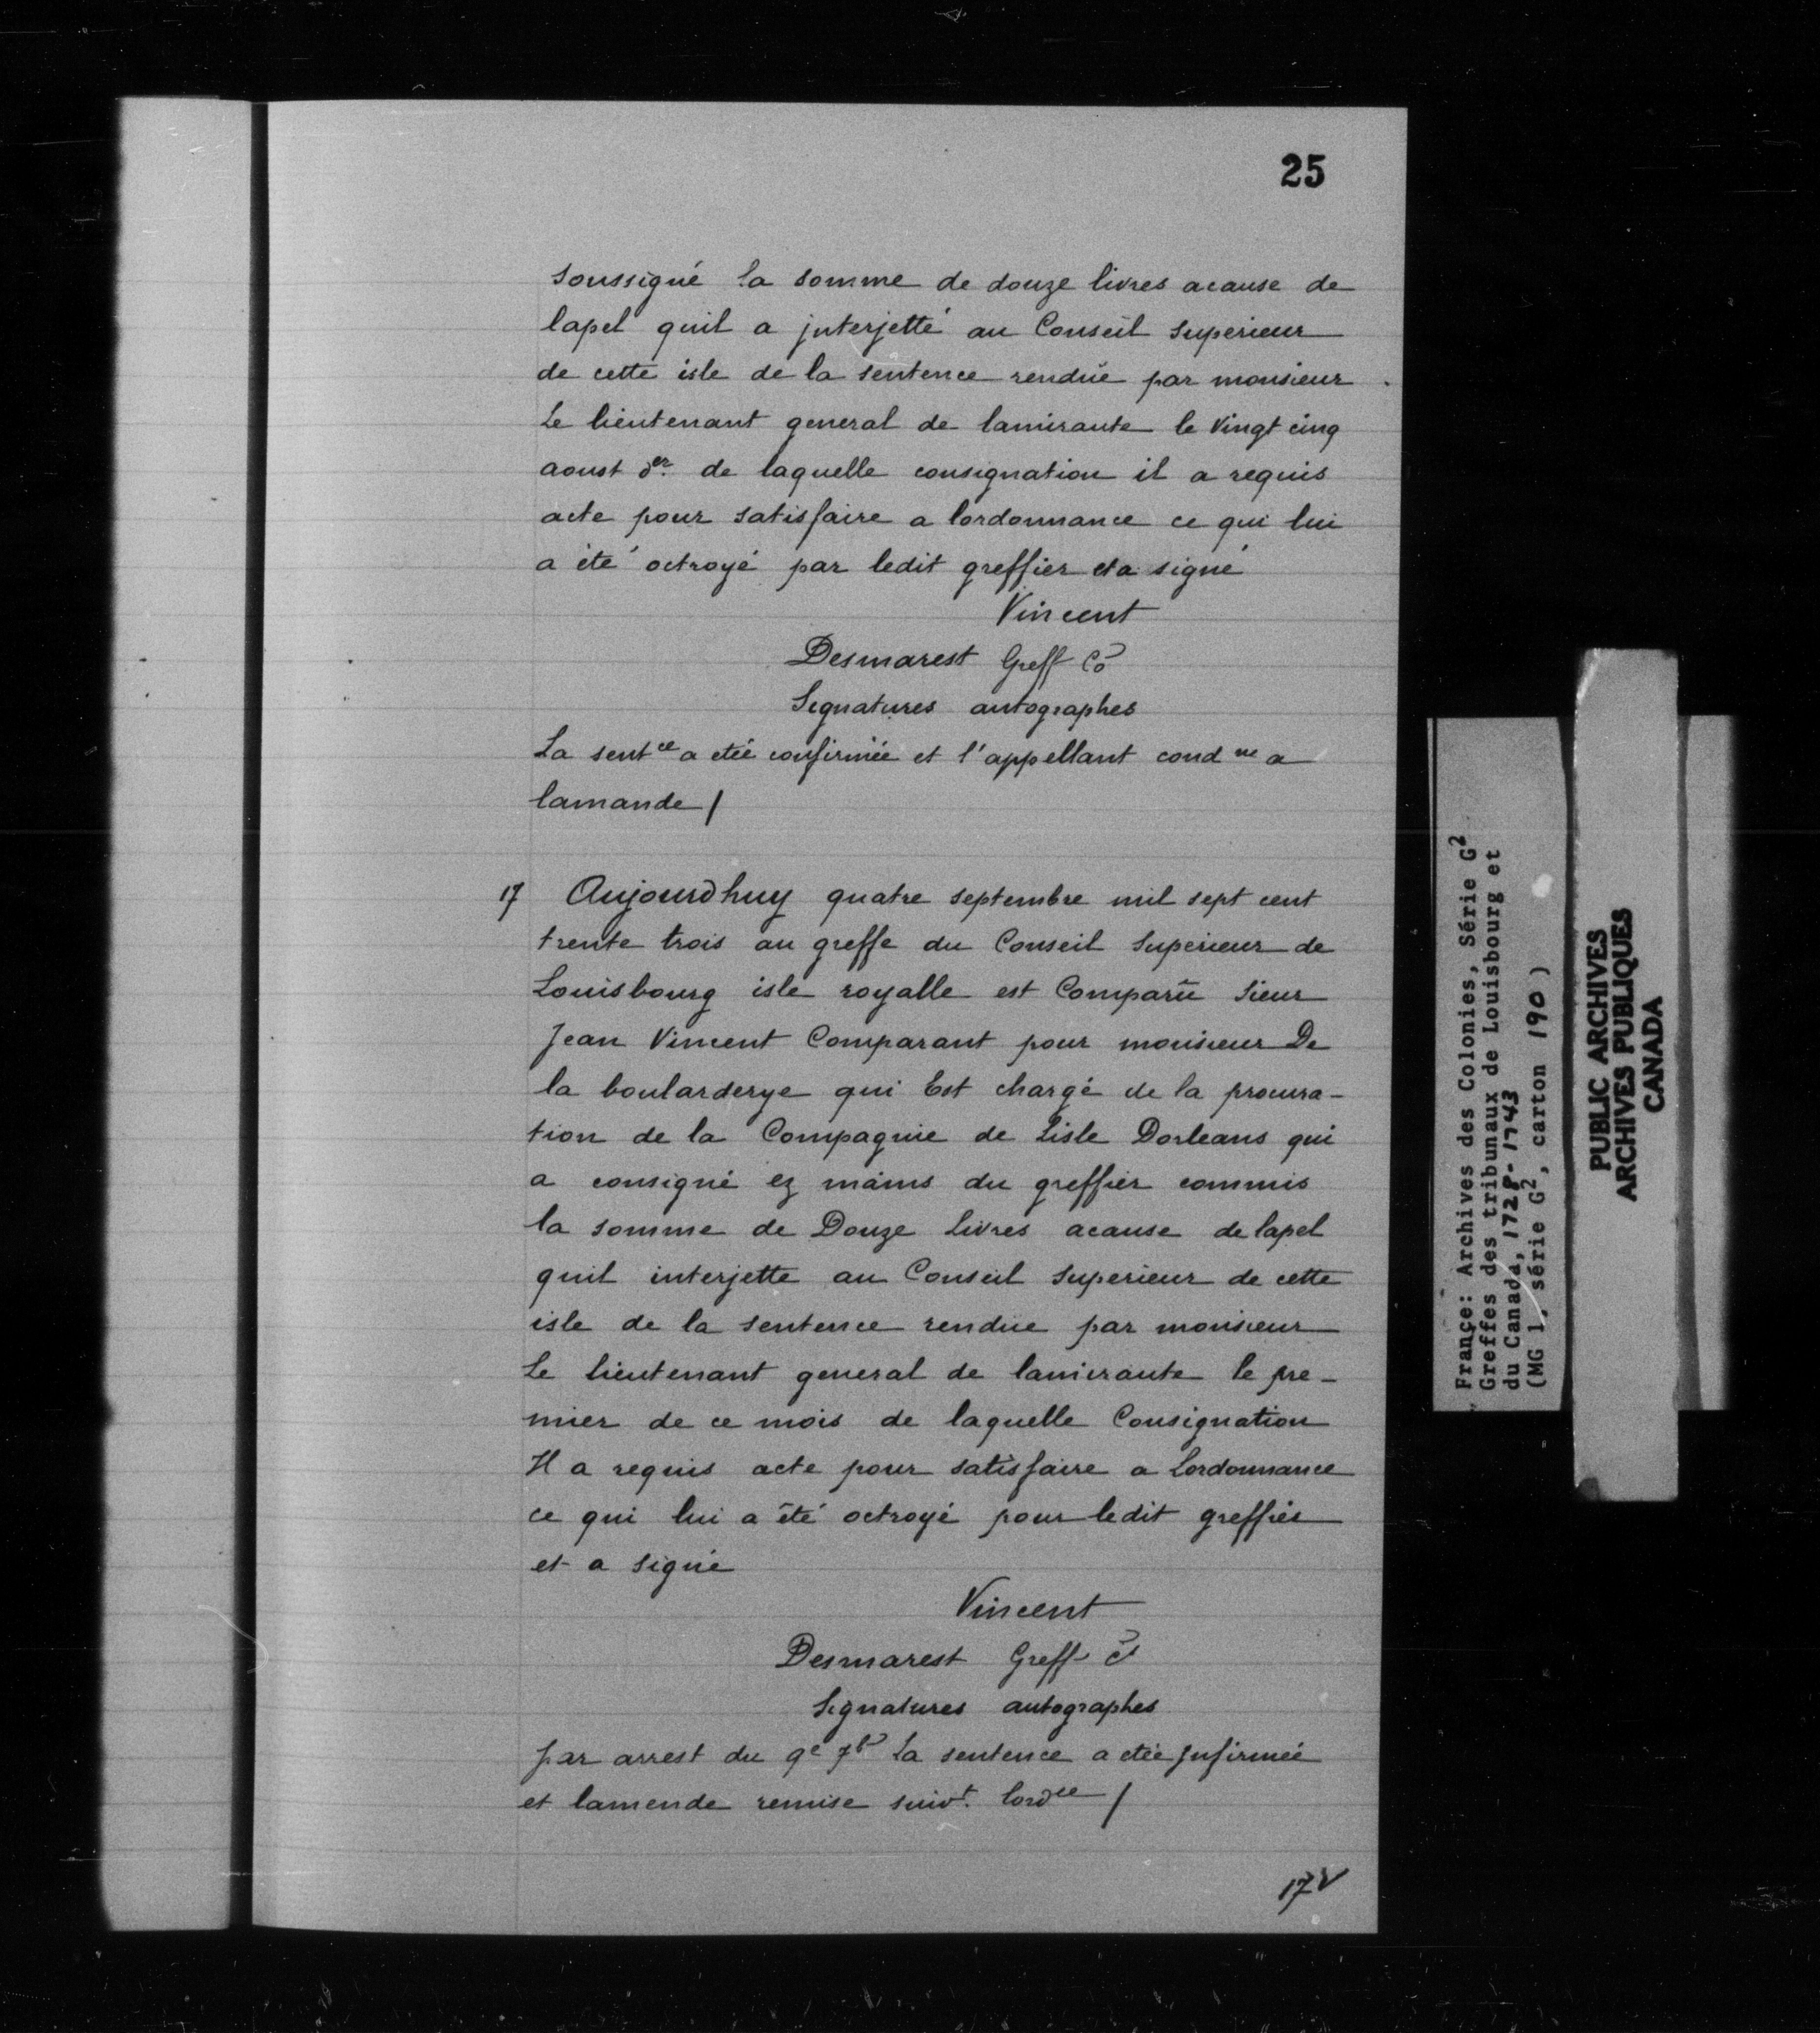 25
soussigné la somme de douze livres acause de
lapel quil a jnterjetté au Conseil superieur
de cette isle de la sentence rendüe par monsieur
Le lieutenant general de lamirauté le vingt cinq
aoust der. de laquelle consignation il a requis
acte pour satisfaire a lordonnance ce qui lui
a été octroyé par ledit greffier et a signé
Vincent
Desmarest Greff Co
Signatures autographes
La sentce a etée confirmée et l'appellant condne a
lamande /
17 Aujourdhuy quatre septembre mil sept cent
trente trois au greffe du Conseil superieur de
Louisbourg isle royalle est Comparü sieur
Jean Vincent Comparant pour monsieur De
la boularderye qui Est chargé de la procura-
tion de la Compagnie de Lisle Dorleans qui
a consigné ez mains du greffier commis
la somme de Douze Livres acause de lapel
quil interjette au Conseil superieur de cette
isle de la sentence rendüe par monsieur
Le lieutenant general de lamirauté le pre-
mier de ce mois de laquelle Consignation
Il a requis acte pour satisfaire a Lordonnance
ce qui lui a été octroyé pour ledit greffier
et a signé
Vincent
Desmarest Greff
Signatures autographes
par arrest du 9e 7b La sentence a etée jnfirmée
et lamende remise suivt. lordce /
17v
France: Archives des Colonies, Série G2
Greffes des tribunaux de Louisbourg et
du Canada, 1728-1743
(MG 1, série G2, carton 190)
PUBLIC ARCHIVES
ARCHIVES PUBLIQUES
CANADA